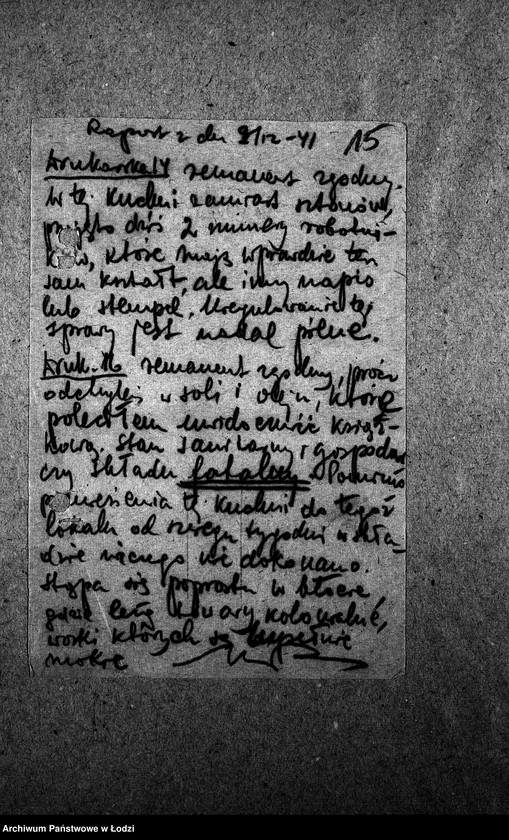 Raport z dn 9/12-41 15
Drukarska 14 remanent zgodny.
W tej kuchni zamiast sztonów,
przyjęto dziś 2 numery robotni-
ków, które mają wprawdzie ten
sam kształt, ale inny napis
lub stempel. Uregulowanie tej
sprawy jest nadal pilne.
Druk. 16 remanent zgodny, prócz
odchyleń w soli i oleju, które
poleciłem uwidocznić książ-
kowo. Stan sanitarny i gospodar
czy składu fatalny. Pomimo
przeniesienia tej kuchni do tegoż
lokalu od szeregu tygodni w skła-
dzie niczego nie dokonano.
Stąpa się poprostu w błocie,
gdzie leżą towary kolonialne,
worki których są zupełnie
mokre
Archiwum Państwowe w Łodzi